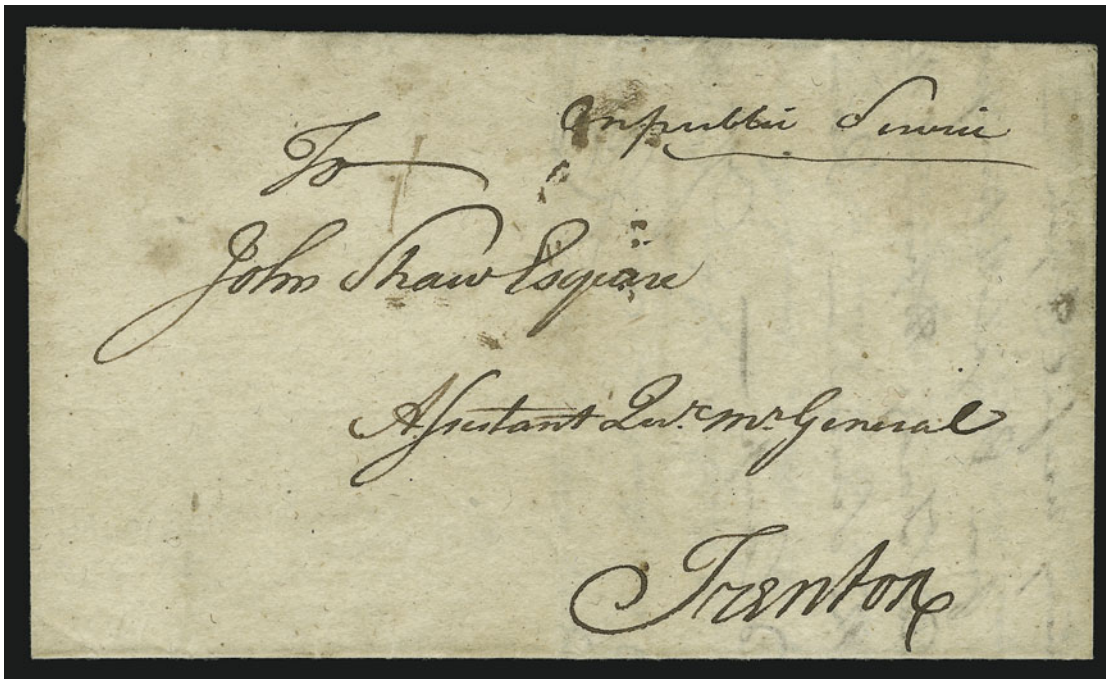 On public Service
To
John Shaw Esquire
Assistant Qur. Mr. General
Trenton